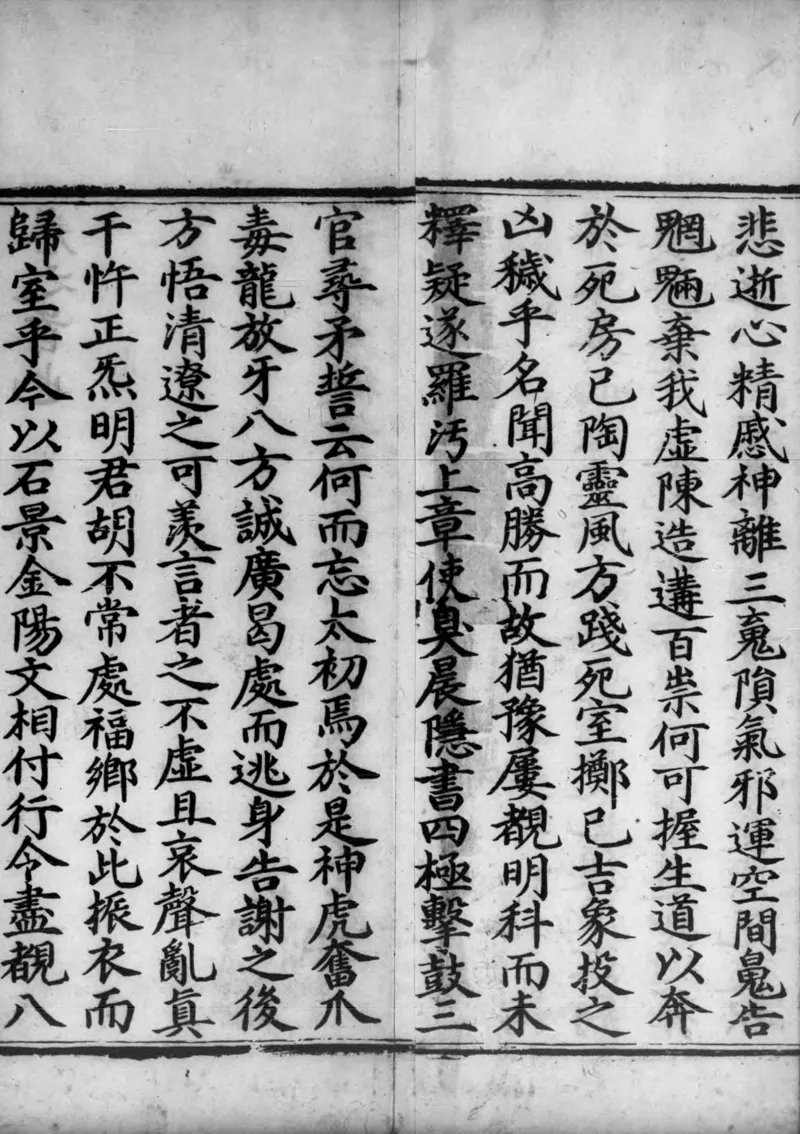 悲逝心精慼神離三䰟隕氣邪運空間鬼告
魍魎棄我虛陳造遘百祟何可握生道以奔
於死房已陶靈風方踐死室擲已吉象投之
凶穢乎名聞高勝而故猶豫屢覩明科而未
釋疑遂羅汚上章使臭晨隱書四極擊鼓三
官尋矛誓云何而忘太初焉於是神虎奮爪
毒龍放牙八方誠廣曷處而逃身告謝之後
方悟清遼之可羨言者之不虛且哀聲亂真
干忤正炁明君胡不常處福鄉於此振衣而
歸室乎今以石景金陽文相付行令盡覩八